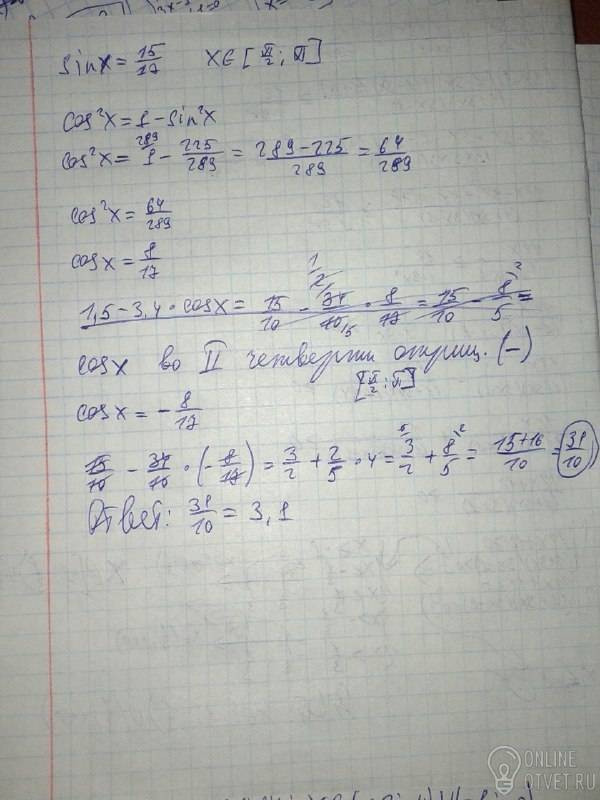 sinx = 15/17 x∈[π/2; π]
cos²x = 1 - sin²x
cos²x = 1 - 225/289 = 289-225/289 = 64/289
cos²x = 64/289
cosx = 8/17
1,5 - 3,4 · cosx = 15/10 - 34/10 · 8/17 = 15/10 - 8/5 =
cosx во II четверти отриц. (-)
[π/2; π]
cosx = - 8/17
15/10 - 34/10 · (- 8/17) = 3/2 + 2/5 · 4 = 3/2 + 8/5 = 15+16/10 = 31/10
Ответ: 31/10 = 3,1
ONLINE
OTVET.RU